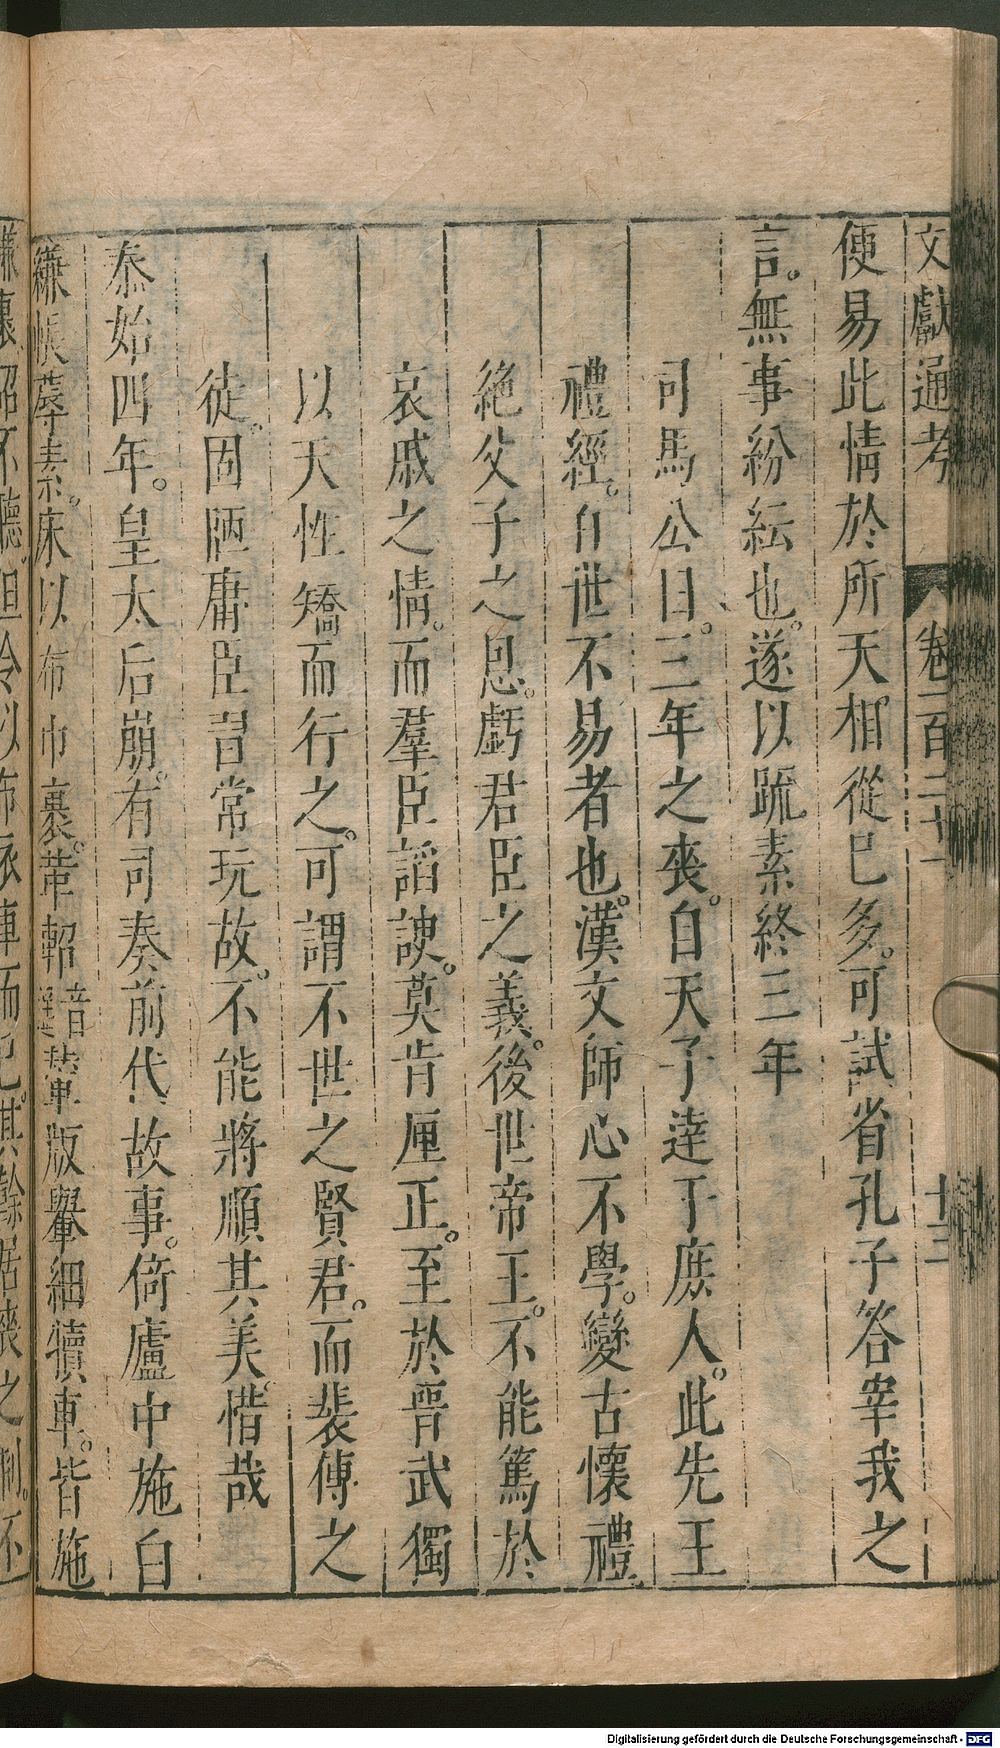 文獻通考 卷一百二十一 十二
便易此情於所天相從已多。可試省孔子答宰我之
言。無事紛紜也。遂以疏素終三年
司馬公曰。三年之喪。自天子達于庶人。此先王
禮經。百世不易者也。漢文師心不學。變古懷禮
絶父子之恩。虧君臣之義。後世帝王。不能篤於
哀戚之情。而羣臣諂諛。莫肯厘正。至於晉武獨
以天性矯而行之。可謂不世之賢君。而裴傅之
徒。固陋庸臣。習常玩故。不能將順其美。惜哉
泰始四年。皇太后崩。有司奏前代故事。倚廬中施白
縑帳蓐素。床以布巾裹。革軺音選輦版轝細犢車。皆施
縑裏。詔不聽。但令以布衣車而已。其餘居喪之制。不
Digitalisierung gefördert durch die Deutsche Forschungsgemeinschaft - DFG